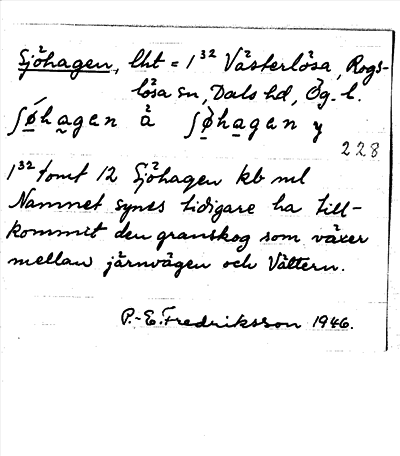 Sjöhagen, lht = 1³² Västerlösa, Rogs-
lösa sn, Dals hd, Ög. l.
ʃǿ̱ha̱gen å̀ ʃø̱̀ha̱gen y
228
1³² tomt 12 Sjöhagen kb ml
Namnet synes tidigare ha till-
kommit den granskog som växer
mellan järnvägen och Vättern.
P.-E. Fredriksson 1946.